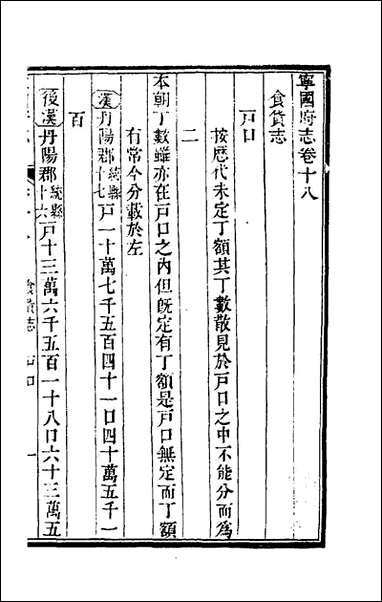 寧國府志卷十八
食貨志
戸口
按歴代未定丁額其丁數散見於戸口之中不能分而爲
二
本朝丁數雖亦在戸口之内但旣定有丁額是戸口無定而丁額
有常今分載於左
漢丹陽郡統縣十七戸一十萬七千五百四十一口四十萬五千一
百
後漢丹陽郡統縣十六戸十三萬六千五百一十八口六十三萬五
食貨志 戸口 一